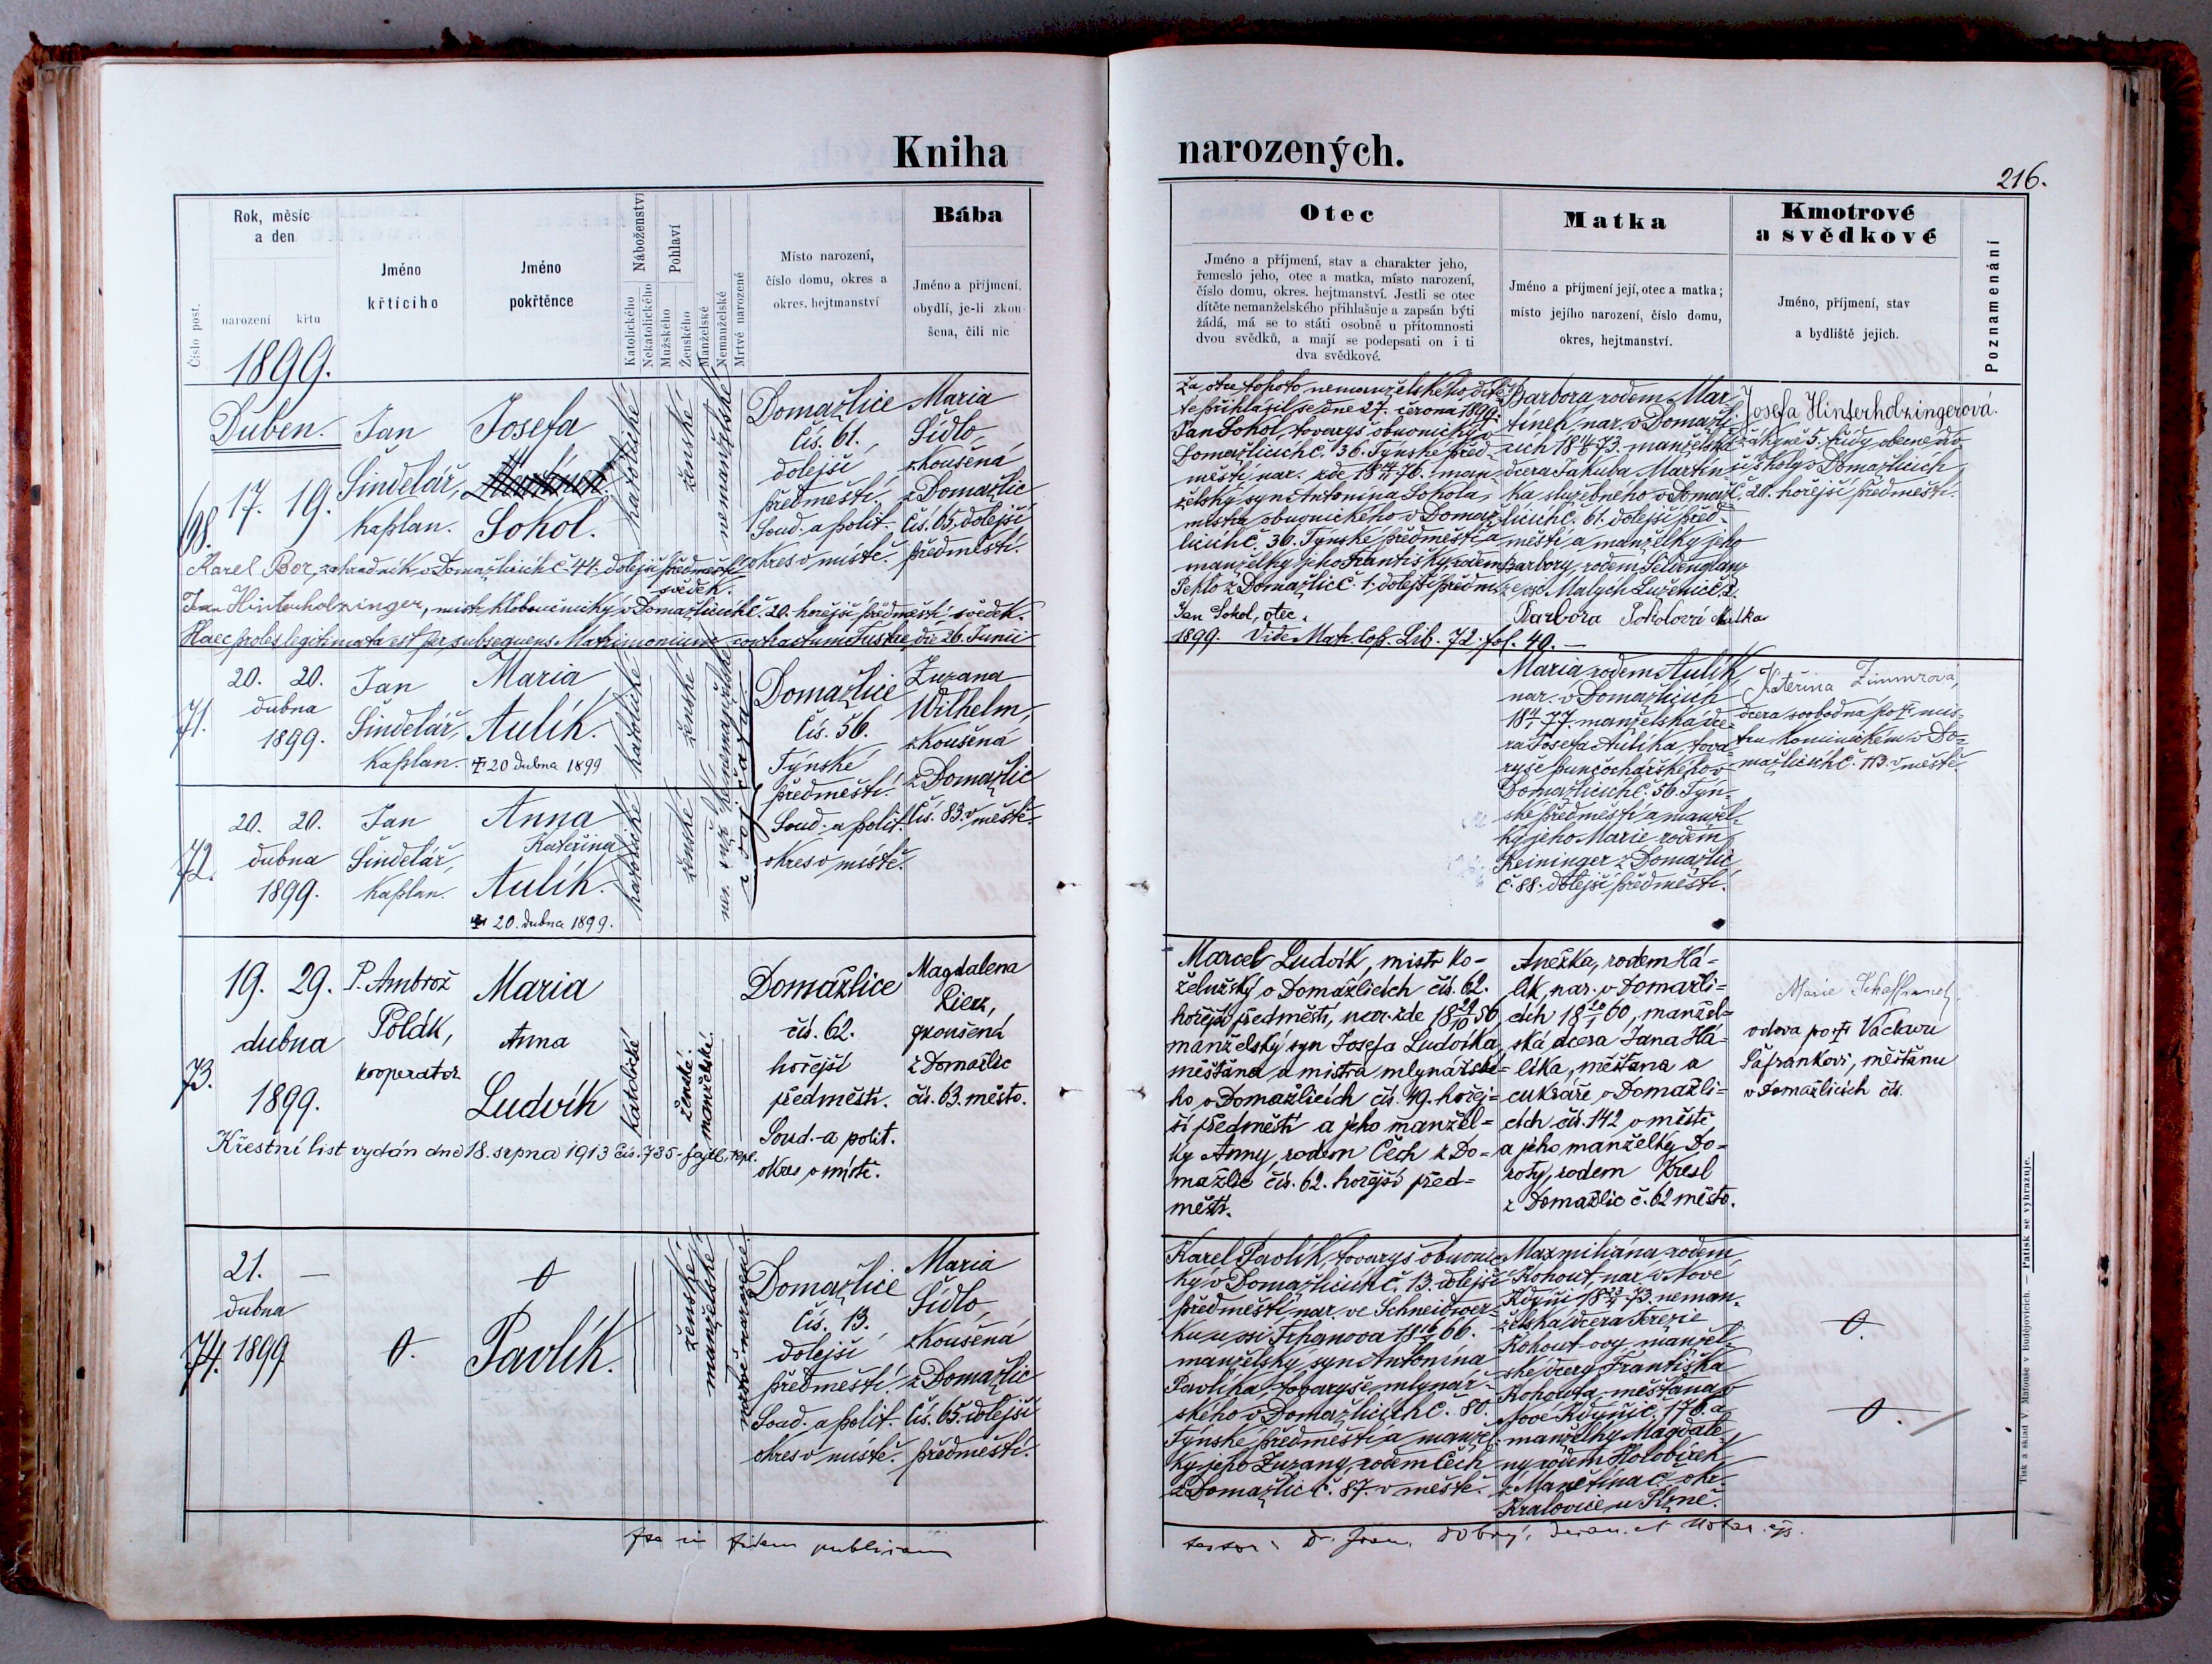 Kniha
narozených.
216.
Číslo post.
Rok, měsíc
a den
narození
křtu
1899.
Jméno
křtícího
Jméno
pokřtěnce
Náboženství
Katolického
Nekatolického
Pohlaví
Mužského
Ženského
Manželské
Nemanželské
Mrtvě narozené
Místo narození,
číslo domu, okres a
okres. hejtmanství
Bába
Jméno a příjmení,
obydlí, je-li zkou
šena, čili nic
Otec
Jméno a příjmení, stav a charakter jeho,
řemeslo jeho, otec a matka, místo narození,
číslo domu, okres. hejtmanství. Jestli se otec
dítěte nemanželského přihlašuje a zapsán býti
žádá, má se to státi osobně u přítomnosti
dvou svědků, a mají se podepsati on i ti
dva svědkové.
Matka
Jméno a příjmení její, otec a matka;
místo jejího narození, číslo domu,
okres, hejtmanství.
Kmotrové
a svědkové
Jméno, příjmení, stav
a bydliště jejich.
Poznamenání
Duben.
17. 19.
Jan
Šindelář,
kaplan.
Josefa
Sokol.
katolické
ženské
nemanželské
Domažlice
čís. 61.
dolejší
předměstí.
Soud. a polit.
okres v místě.
Maria
Sídlo,
zkoušená
z Domažlic
čís. 65. dolejší
předměstí.
Za otce tohoto nemanželského dítě
te přihlásil se dne 27. června 1899.
Jan Sokol, tovaryš obuvnický v
Domažlicích č. 36. Týnské před-
městí, nar. zde 76. man-
želský syn Antonína Sokola,
mistra obuvnického v Domaž-
licích č. 36. Týnské předměstí a
manželky jeho Františky, rodem
z Domažlic č. 1. dolejší předm.
Jan Sokol, otec.
Barbora rodem Mar-
tínek, nar. v Domažl-
cích 73. manželská
dcera Jakuba Martín-
ka služebného v Domaž-
licích č. 61. dolejší před-
městí a manželky jeho
Barbory, rodem
ze vsi Malých Luženic č. 2.
Barbora Sokolová Matka
Josefa Hinterholzingerová.
žákyně 5. třídy obecné dív
čí školy v Domažlicích
č. 20. hořejší předměstí.
Karel Bor, zahradník v Domažlicích č. 44. dolejší předměstí
svědek.
Jan Hinterholzinger, mistr kloboučnický v Domažlicích č. 20. hořejší předměstí, svědek.
Haec proles legitimata est per subsequens Matrimonium contractum Tustae die 26. Junii
1899. Vide Matr. Cop. Lib. 72. fol. 40. —
71.
20. 20.
dubna
1899.
Jan
Šindelář,
kaplan.
Maria
Aulík.
† 20 dubna 1899
katolické
ženské
nemanželské
dvojčata
Domažlice
čís. 56.
Týnské
předměstí.
Soud. a polit.
okres v místě.
Zuzana
Wilhelm,
zkoušená
z Domažlic
čís. 83. v městě.
Maria rodem Aulík,
nar. v Domažlicích
77. manželská dce-
ra Josefa Aulíka, tova-
ryše punčochářského v
Domažlicích č. 56. Týn-
ské předměstí a manžel-
ky jeho Marie rodem
Reininger z Domažlic
č. 88. dolejší předměstí.
Kateřina Zimmrová,
dcera svobodná po † mis-
tru kominickém v Do-
mažlicích č. 113. v městě.
72.
20. 20.
dubna
1899.
Jan
Šindelář,
kaplan.
Anna
Kateřina
Aulík.
† 20. dubna 1899.
katolické
ženské
73.
19. 29.
dubna
1899.
P. Ambrož
Polák,
kooperator
Maria
Anna
Ludvík
katolické
ženské.
manželské.
Domažlice
čís. 62.
hořejší
předměstí.
Soud. a polit.
okres v místě.
Magdalena
zkoušená
z Domažlic
čís. 63. město.
Křestní list vydán dne 18. srpna 1913 čís. 735
Marcel Ludvík, mistr ko-
želužský v Domažlicích čís. 62.
hořejší předměstí, nar. zde 18 29/10 56,
manželský syn Josefa Ludvíka,
měšťana a mistra mlynářské-
ho v Domažlicích čís. 49. hořej-
ší předměstí a jeho manžel-
ky Anny, rodem Čech z Do-
mažlic čís. 62. hořejší před-
městí.
Anežka, rodem Há-
lík, nar. v Domažli-
cích 60, manžel-
ská dcera Jana Há-
líka, měšťana a
cukráře v Domažli-
cích čís. 142 v městě
a jeho manželky Do-
roty, rodem Kresl
z Domažlic č. 62 město.
Marie
vdova po † Václavu
Šafránkovi, měšťanu
v Domažlicích čís.
74.
21. —
dubna
1899
Pavlík.
ženské
manželské
mrtvě narozené.
Domažlice
čís. 13.
dolejší
předměstí.
Soud. a polit.
okres v místě.
Maria
Sídlo,
zkoušená
z Domažlic
čís. 65. dolejší
předměstí.
Karel Pavlík, tovaryš obuvnic-
ký v Domažlicích č. 13. dolejší
předměstí, nar. ve
ku u vsi Trhanova 66.
manželský syn Antonína
Pavlíka, tovaryše mlynář-
ského v Domažlicích č. 80.
Týnské předměstí a manžel-
ky jeho Zuzany, rodem Čech
z Domažlic č. 87. v městě.
Maxmiliána rodem
Kohout, nar. v Nové
Kdyni 73. neman-
želská dcera Terezie
Kohoutovy, manžel-
ské dcery Františka
Kohouta, měšťana v
Nové Kdyni č. 176. a
manželky Magdale-
ny rodem Holobírek
z Manětína okr.
Kralovice u Plzně.
fidem publicam
testor: Dr. Joan. Dobrý,
Tisk a sklad V. Matouše v Budějovicích. — Patisk se vyhrazuje.